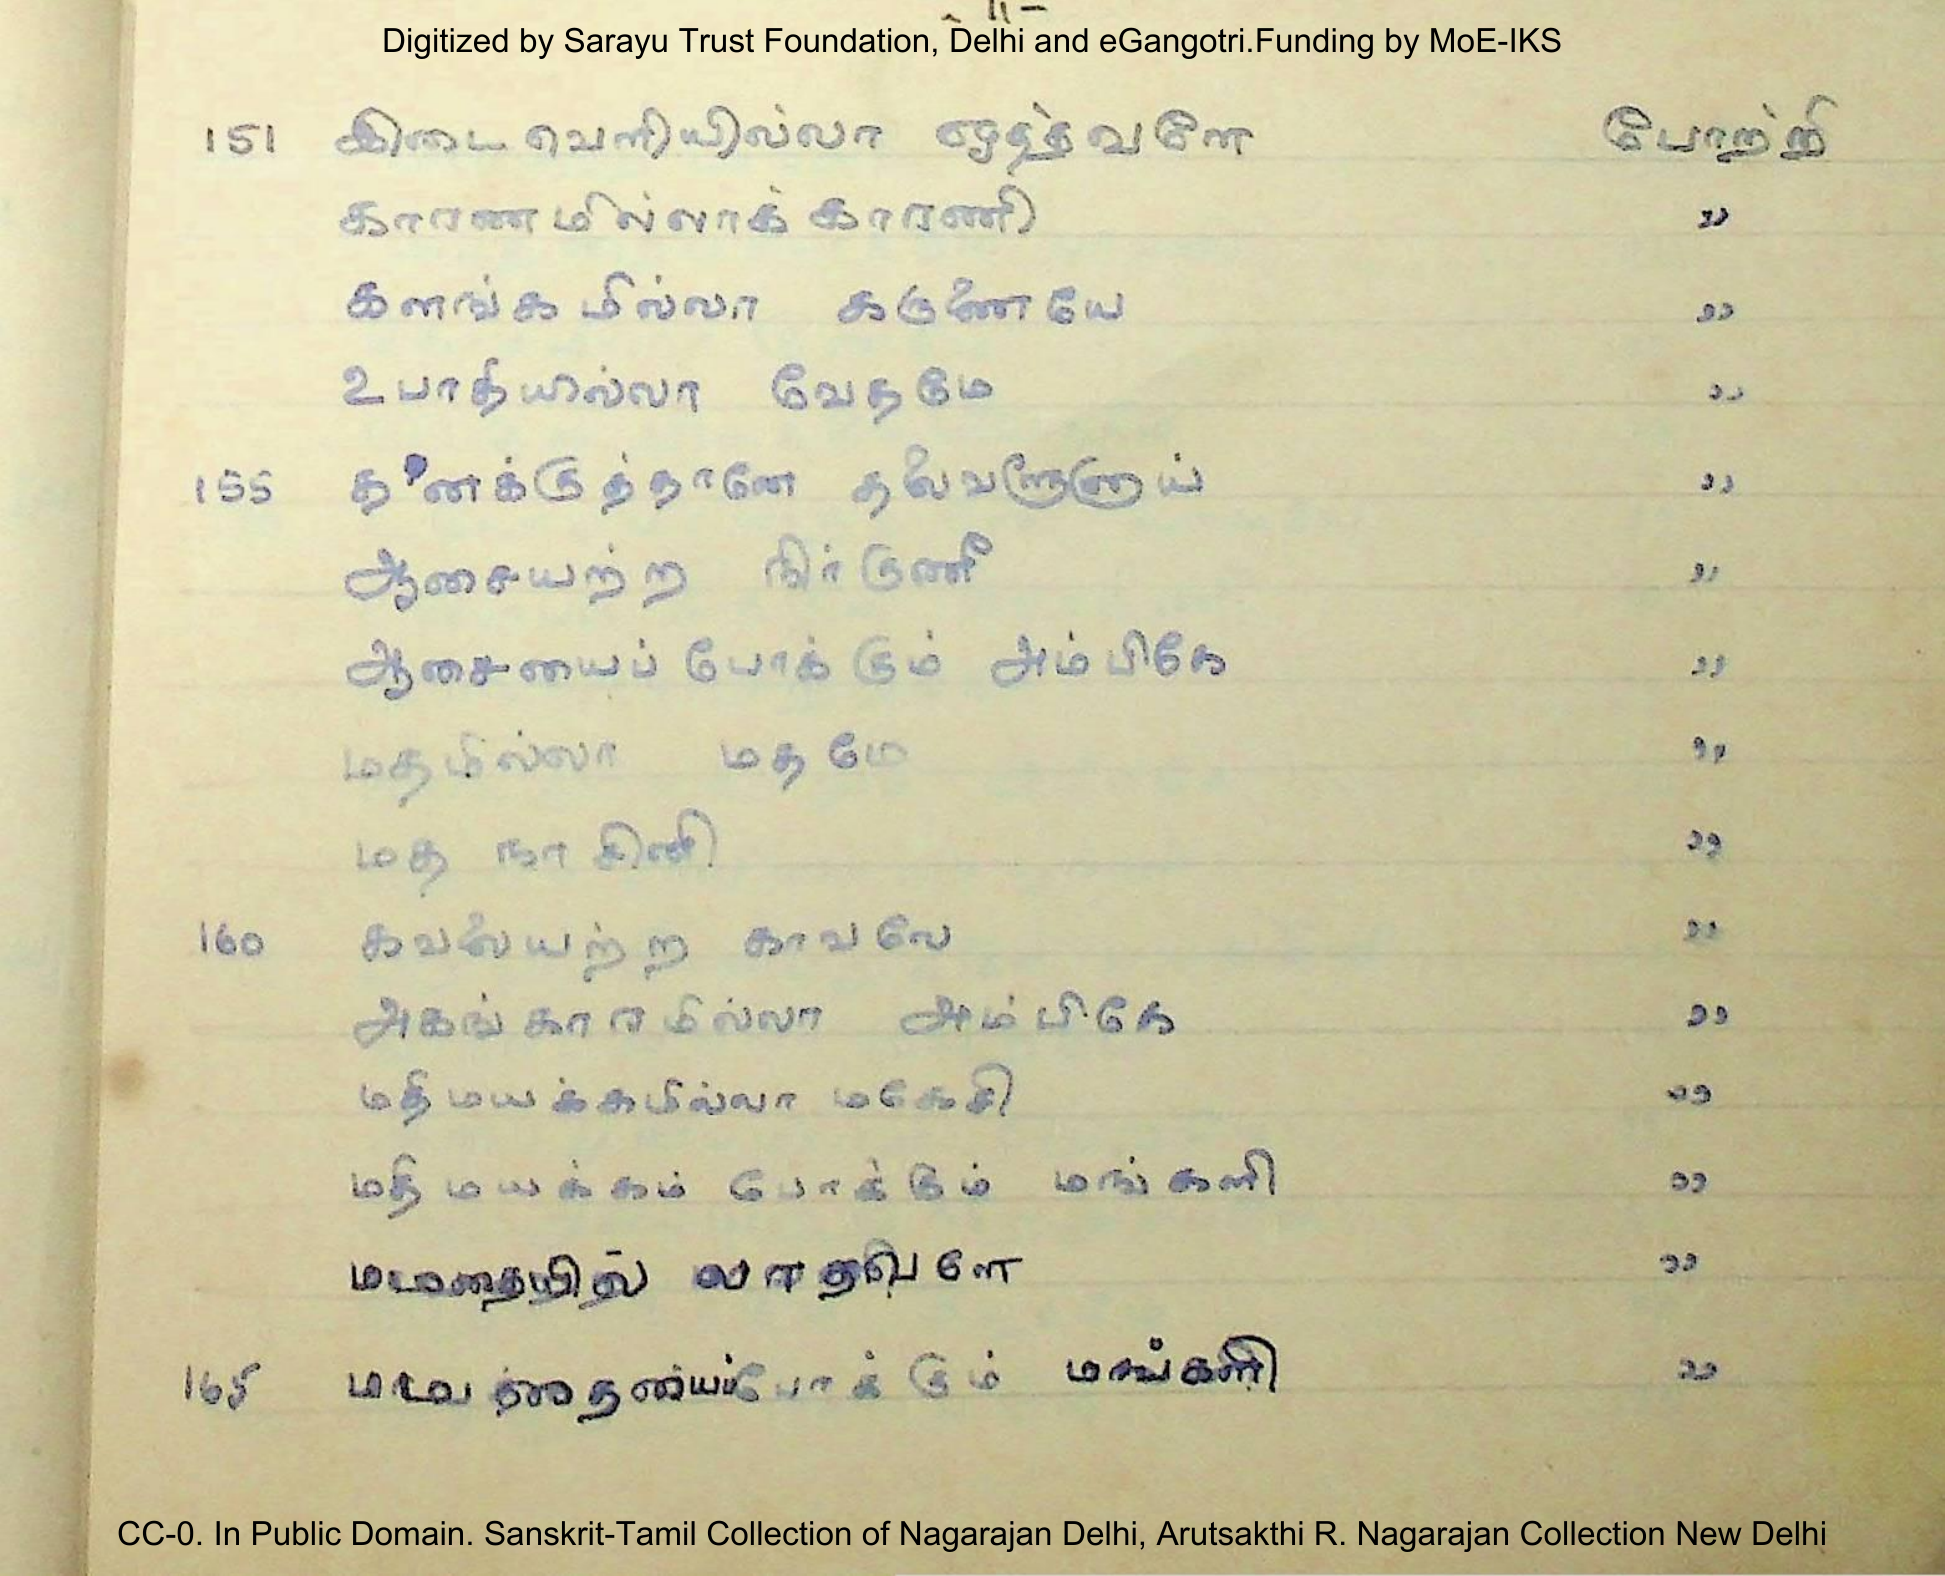 Digitized by Sarayu Trust Foundation, Delhi and eGangotri.Funding by MoE-IKS
151 இடைவெளியில்லா போற்றி
காரணமில்லாக் காரணி ,,
களங்கமில்லா கருணையே ,,
உபாதியில்லா வேதமே ,,
155 தனக்குத்தானே தலைவளுளாய் ,,
ஆசையற்ற நிர்குணி ,,
ஆசையைப் போக்கும் அம்பிகே ,,
மதமில்லா மதமே ,,
மத நாசினி ,,
160 கவலையற்ற காவலே ,,
அகங்காரமில்லா அம்பிகே ,,
மதிமயக்கமில்லா மகேசி ,,
மதி மயக்கம் போக்கும் மங்களி ,,
,,
165 போக்கும் மங்களி ,,
CC-0. In Public Domain. Sanskrit-Tamil Collection of Nagarajan Delhi, Arutsakthi R. Nagarajan Collection New Delhi